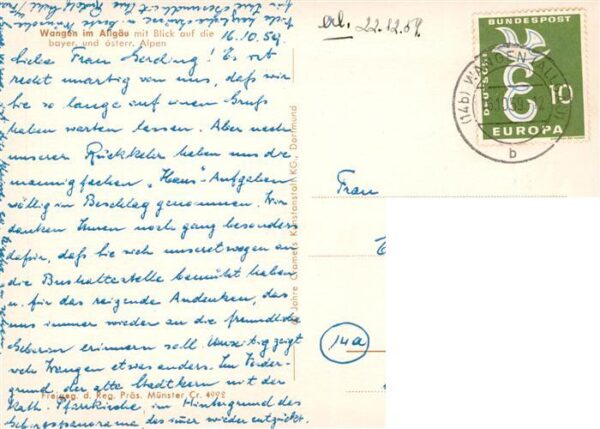 Wangen im Allgäu mit Blick auf die
bayer. und österr. Alpen
16.10.59.
Liebe Frau Gerding! Es ist
recht unartig von uns, daß wir
Sie so lange auf einen Gruß
haben warten lassen. Aber nach
unserer Rückkehr haben uns die
mannigfachen "Haus"-Aufgaben
völlig in Beschlag genommen. Wir
danken Ihnen noch ganz besonders
dafür, daß Sie sich unseretwegen an
die Bushaltestelle bemüht haben
u. für das reizende Andenken, das
uns immer wieder an die freundliche
Geberin erinnern soll. Umseitig zeigt
sich Wangen etwas anders. Im Vorder-
grund der alte Stadtkern mit der
kath. Pfarrkirche, im Hintergrund das
Gebirgspanorama das immer wieder entzückt.
Freigeg. d. Reg. Präs. Münster Cr. 4992
Jahre Cramers Kunstanstalt KG., Dortmund
erl. 22.12.59.
DEUTSCHE BUNDESPOST
10
EUROPA
(14b) WANGEN (ALLGÄU)
16.10.59
b
Frau
14a